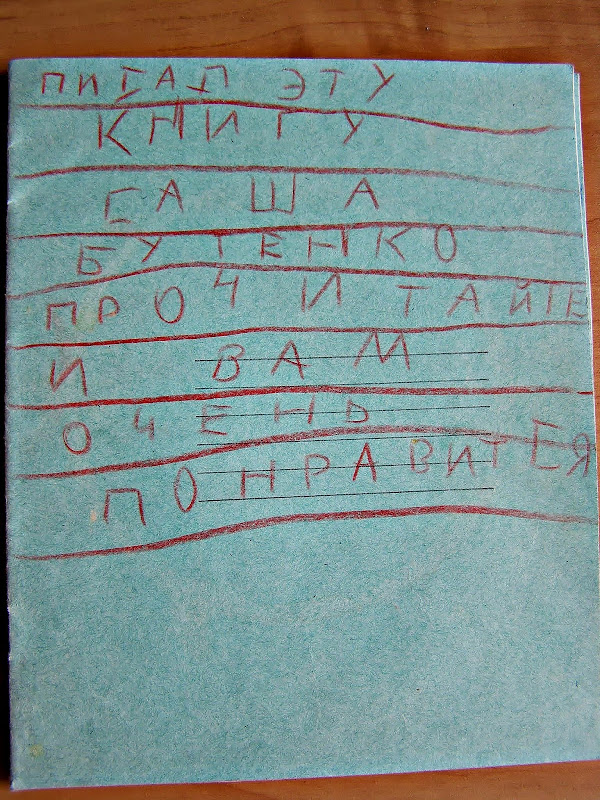 ПИСАЛ ЭТУ
КНИГУ
САША
БУТЕНКО
ПРОЧИТАЙТЕ
И ВАМ
ОЧЕНЬ
ПОНРАВИТЕЯ